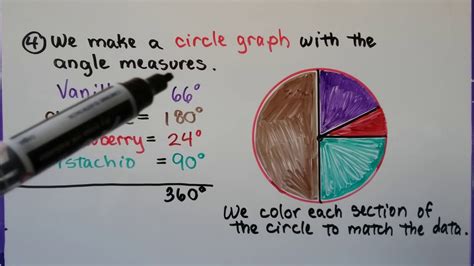 ④ We make a circle graph with the
angle measures.
Vanill 66°
= 180°
wberry = 24°
istachio = 90°
360°
We color each section of
the circle to match the data.